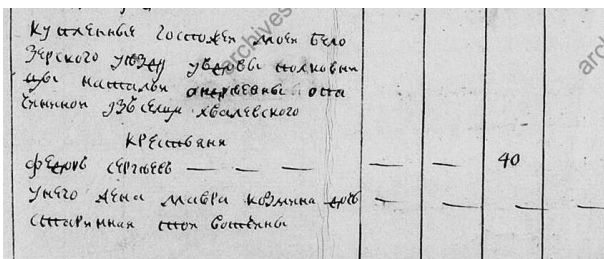 купленные госпожею моею бело
зерского уезду у вдовы полковни
цы натальи андреевны опа
чининой из селца хвалевского
крестьяня
федоръ сергеевъ — — — — — 40
у него жена мавра козмина доч
старинная той вотчины
archives
arc